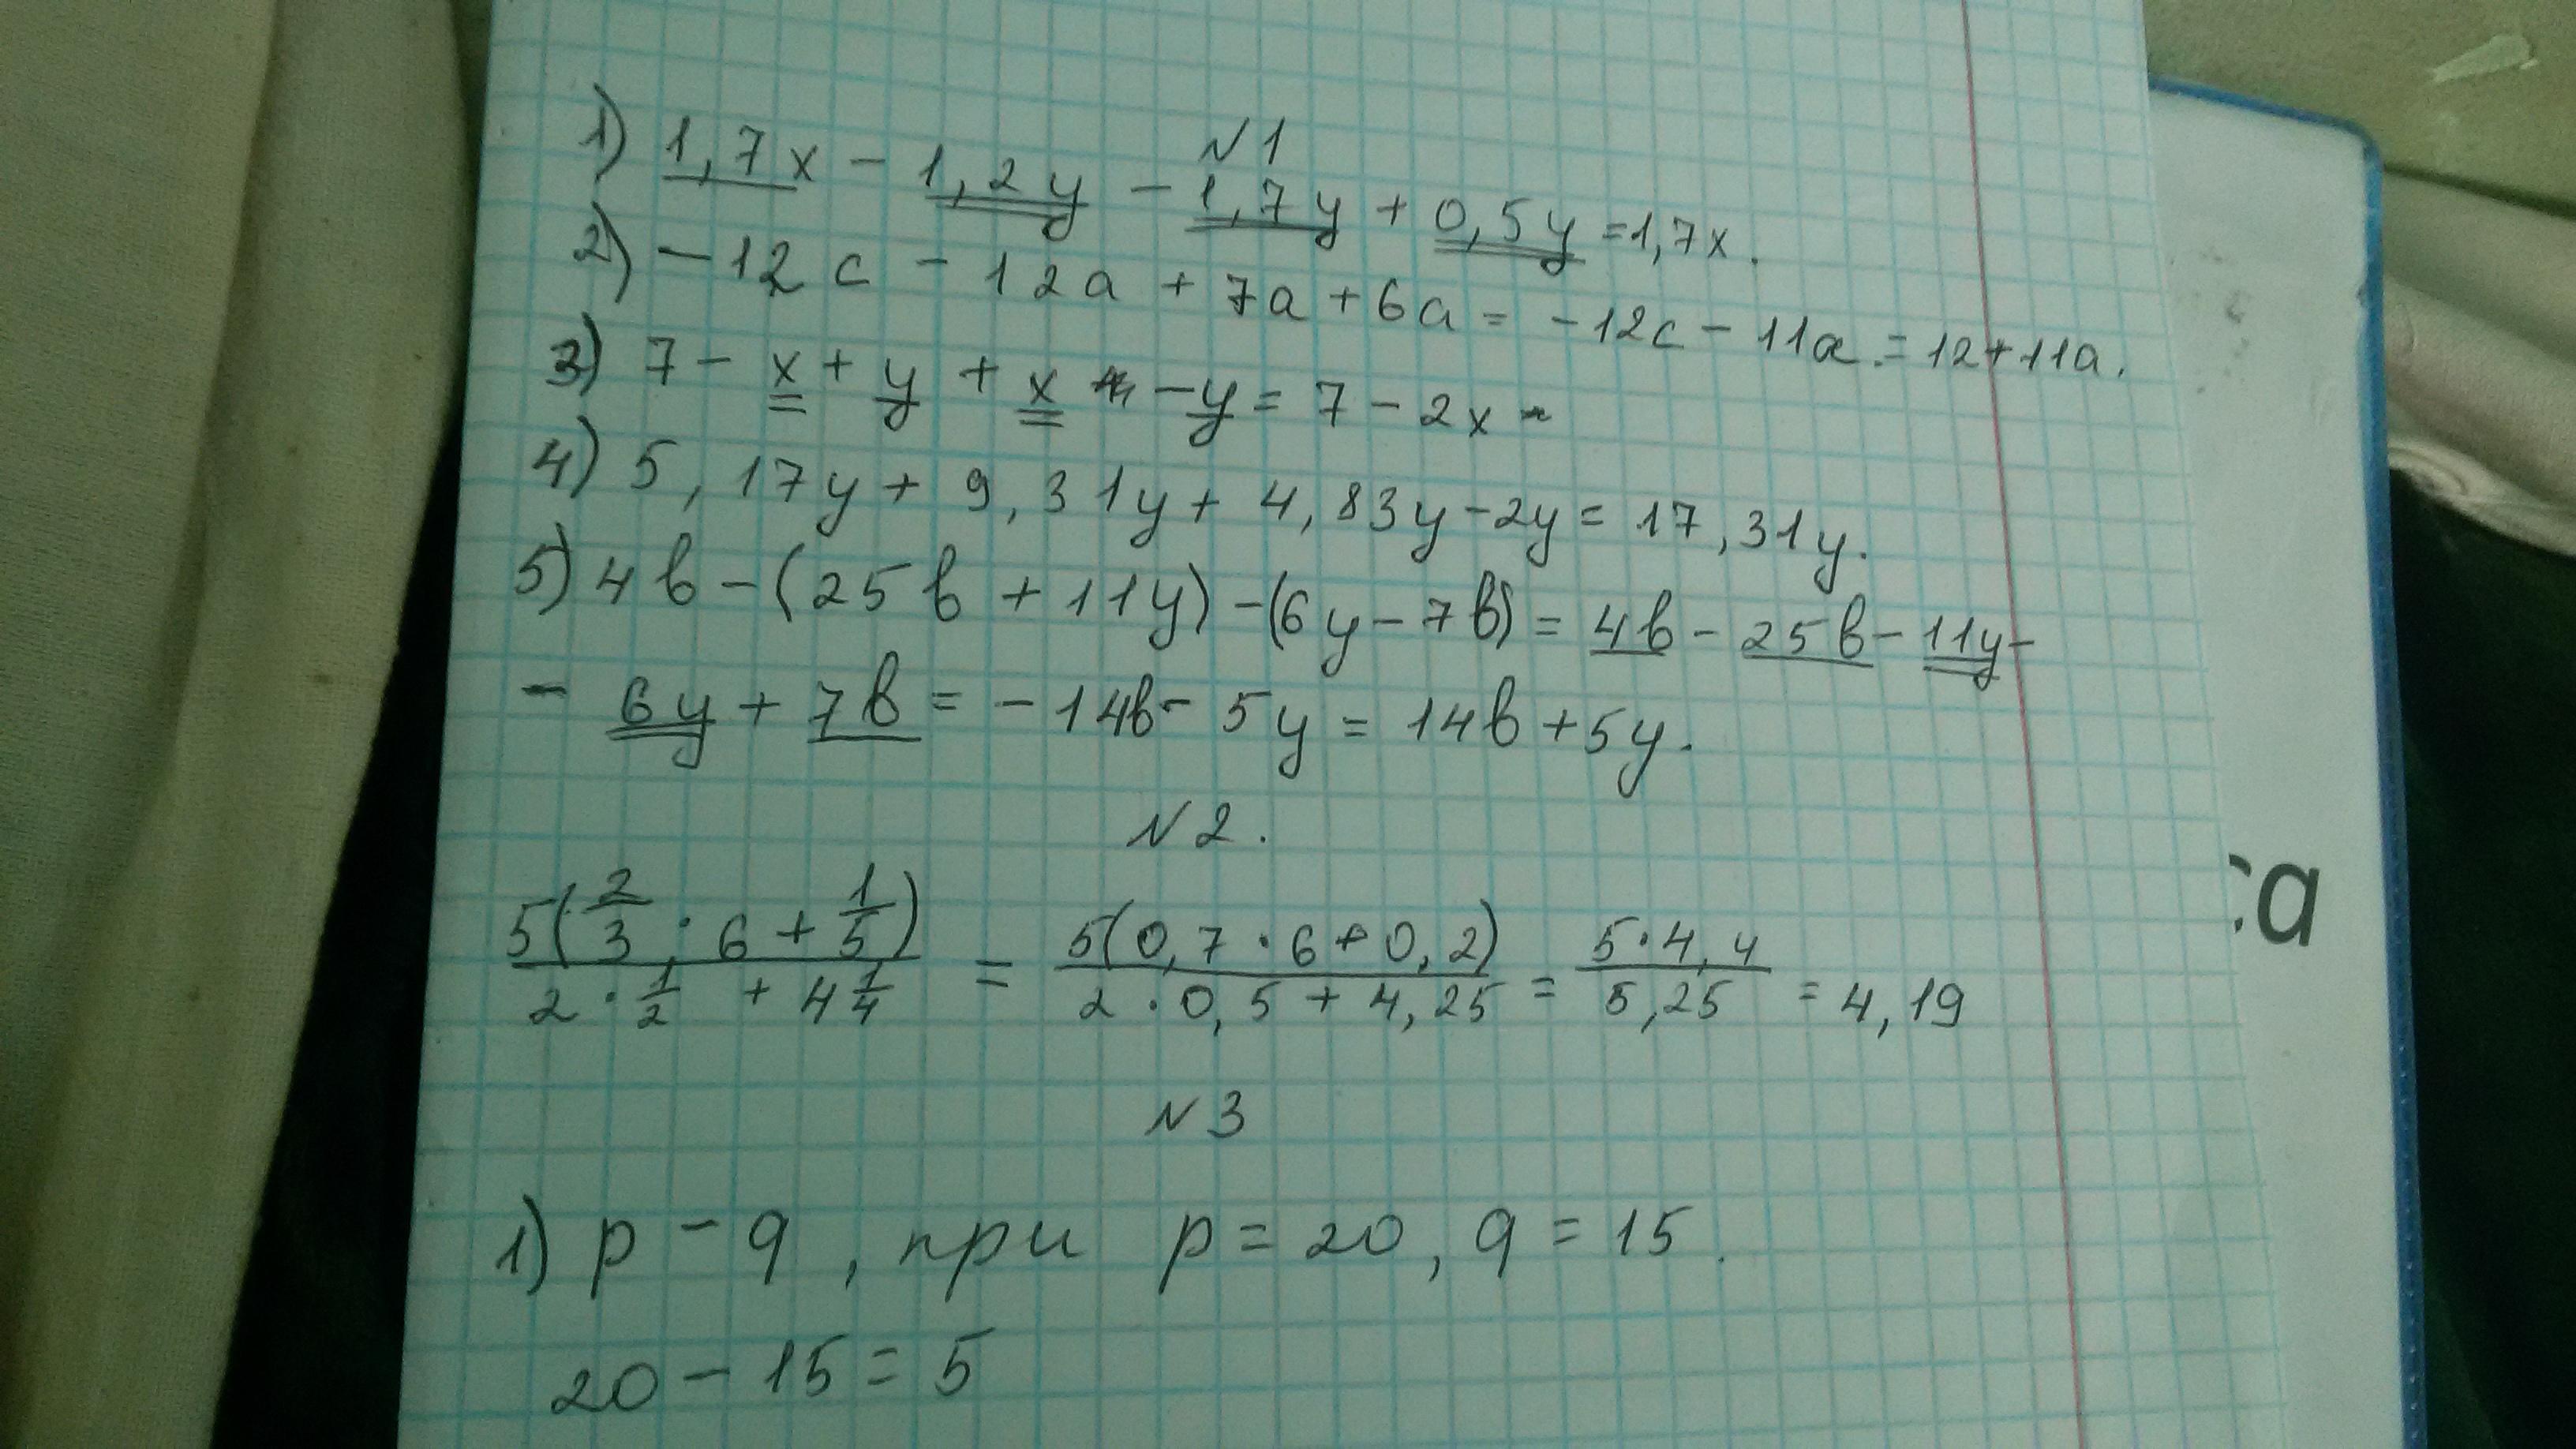 N1
1) 1,7x - 1,2y - 1,7y + 0,5y = 1,7x.
2) -12c - 12a + 7a + 6a = -12c - 11a. = 12 + 11a.
3) 7 - x + y + x - y = 7 - 2x -
4) 5,17y + 9,31y + 4,83y - 2y = 17,31y.
5) 4b - (25b + 11y) - (6y - 7b) = 4b - 25b - 11y -
- 6y + 7b = -14b - 5y = 14b + 5y.
N2.
5(2/3 · 6 + 1/5) / (2 · 1/2 + 4 1/4) = 5(0,7 · 6 + 0,2) / (2 · 0,5 + 4,25) = 5 · 4,4 / 5,25 = 4,19
са
N3
1) p - q, при p = 20, q = 15.
20 - 15 = 5